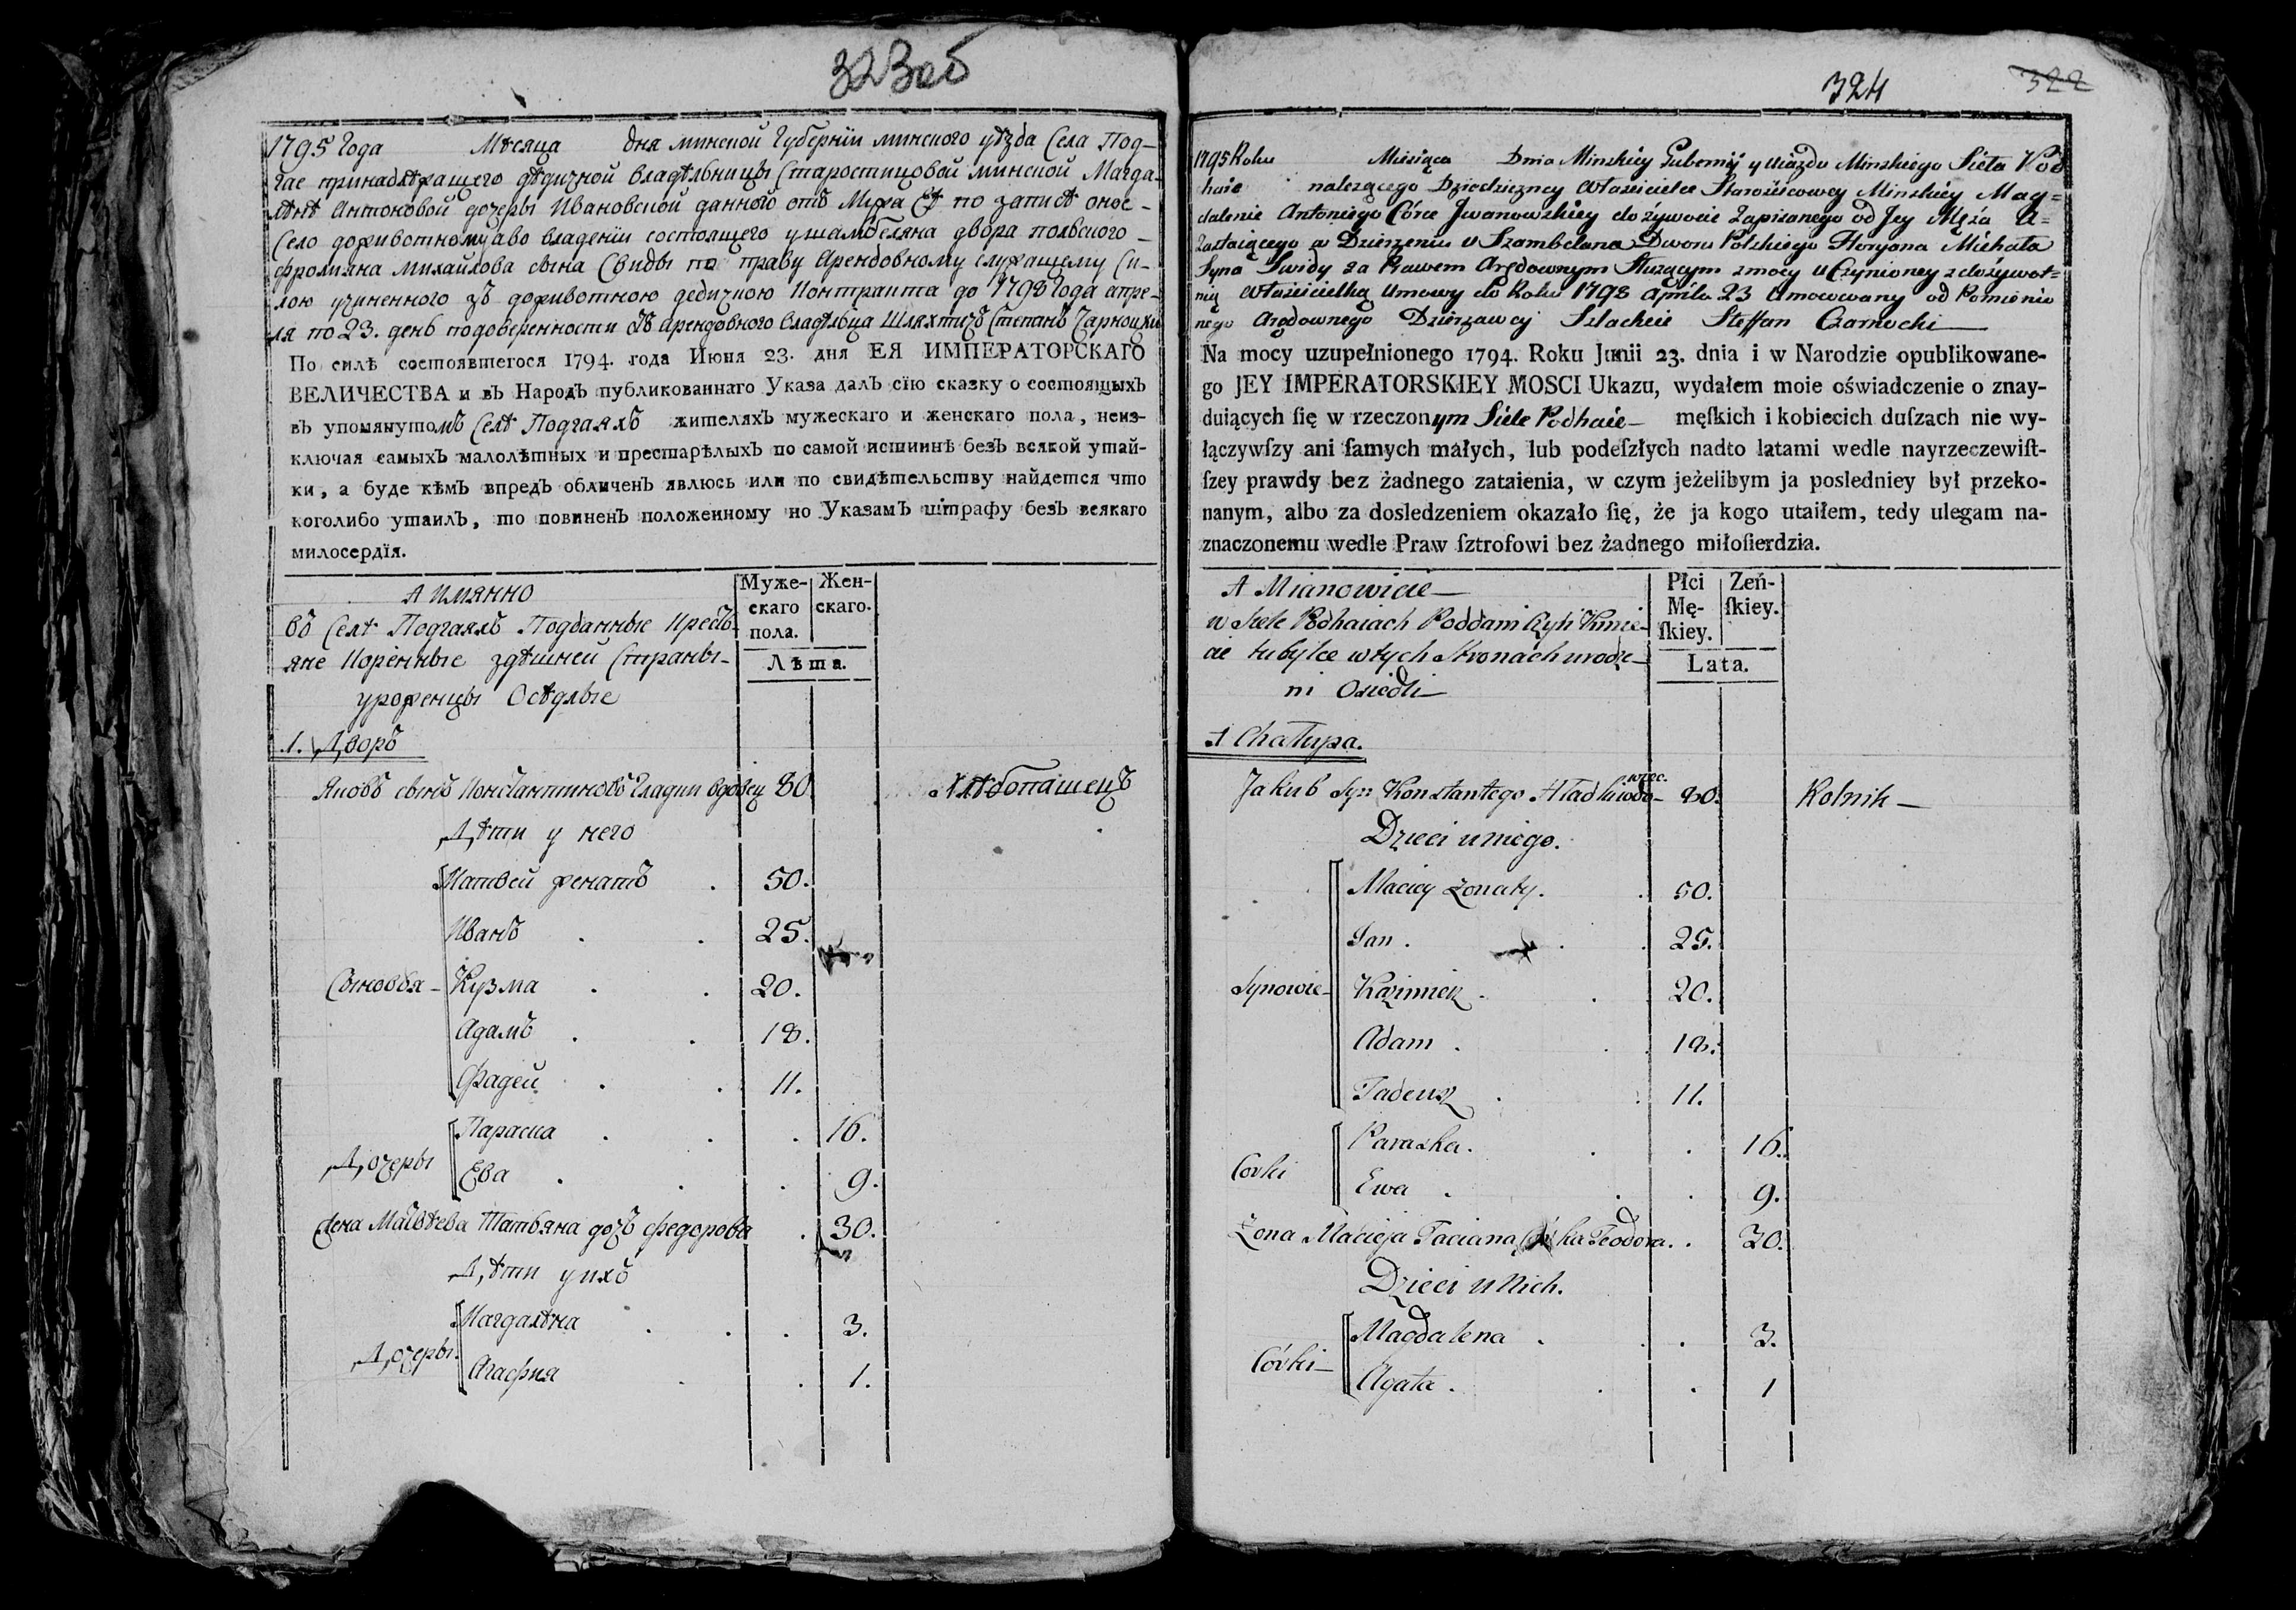 323об
1795 Года Мѣсяца дня минской Губернїи минского уѣзда Села Под-
гае принадлѣжащего дѣдичной владѣльницы Старостицовой минской Магда-
лѣнѣ Антоновой дочеры Ивановской данного отъ Мужа Еѣ по записѣ оное-
Село доживотному во владенїи состоящего у шамбеляна двора польского-
фролияна михайлова сына Свиды по праву Арендовному служащему Си-
лою учиненного зъ доживотною дедичною Контракта до 1798 Года апре-
ля по 23. день по доверенности Отъ арендовного владѣльца Шляхтичъ Степанъ Чарноцки
По силѣ состоявшегося 1794. года Июня 23. дня ЕЯ ИМПЕРАТОРСКАГО
ВЕЛИЧЕСТВА и въ Народъ публикованнаго Указа далъ сїю сказку о состоящыхъ
въ упомянутомъ Селѣ Подгаяхъ жителяхъ мужескаго и женскаго пола, неиз-
ключая самыхъ малолѣтныхъ и престарѣлыхъ по самой истиннѣ безъ всякой утай-
ки, а буде кѣмъ впредъ обличенъ явлюсь или по свидѣтельству найдется что
коголибо утаилъ, то повиненъ положенному по Указамъ штрафу безъ всякаго
милосердїя.
А имянно
Муже-скаго пола. Жен-скаго.
Лѣта.
въ Селѣ Подгаяхъ Подданные Крестъ-
яне Коренные здѣшней Страны-
уроженцы Осѣдлые
1. Дворъ
Яковъ сынъ Константиновъ Гладки вдовец 80 Хлѣбопашецъ
Дѣти у него
Матвей женатъ 50.
Иванъ 25.
Сыновья- Кузма 20.
Адамъ 18.
Фадей 11.
Параска 16.
Дочеры
Ева 9.
Жена Матвѣева Татьяна дочъ Федорова 30.
Дѣти у ихъ
Магдалѣна 3.
Дочеры.
Агафия 1.
324 322
1795 Roku Miesiąca Dnia Minskiey Gubernij y Uiazdu Minskiego Sieła Pod
haie należącego Dziedziczney Właścicielce Starościcowey Minskiey Mag=
dalenie Antoniego Córce Jwanowskiey do żywocie Zapisanego od Jey Męża A=
Zostaiącego w Dzierżeniu U Szambelana Dworu Polskiego Floryana Michała
Syna Swidy za Prawem Arędownym Służącym z mocy Uczynioney z dożywot=
nią Właścicielką Umowy do Roku 1798 Aprila 23 Umocowany od Pomienio
nego Arędownego Dzierzawcy Szlachcic Steffan Czarnocki
Na mocy uzupełnionego 1794. Roku Junii 23. dnia i w Narodzie opublikowane-
go JEY IMPERATORSKIEY MOSCI Ukazu, wydałem moie oświadczenie o znay-
duiących ſię w rzeczonym Siele Podhaie męſkich i kobiecich duſzach nie wy-
łączywſzy ani ſamych małych, lub podeſzłych nadto latami wedle nayrzeczewiſt-
ſzey prawdy bez żadnego zataienia, w czym jeżelibym ja posledniey był przeko-
nanym, albo za dosledzeniem okazało ſię, że ja kogo utaiłem, tedy ulegam na-
znaczonemu wedle Praw ſztrofowi bez żadnego miłoſierdzia.
A Mianowicie
Płci Mę-ſkiey. Zeń-ſkiey.
Lata.
w Siele Podhaiach Poddani Czyli Kmie-
cie tubylce w tych Stronach urodze-
ni Osiedli
1 Chałupa.
Jakub Syn Konstantego Hładki wdo-wiec. 80. Rolnik
Dzieci u niego.
Maciey żonaty. 50.
Jan. 25.
Synowie- Kazimierz. 20.
Adam. 18.
Tadeusz. 11.
Paraska. 16.
Corki
Ewa. 9.
Żona Macieja Taciana Córka Teodora. 30.
Dzieci u Nich.
Magdalena. 3.
Córki-
Agata. 1